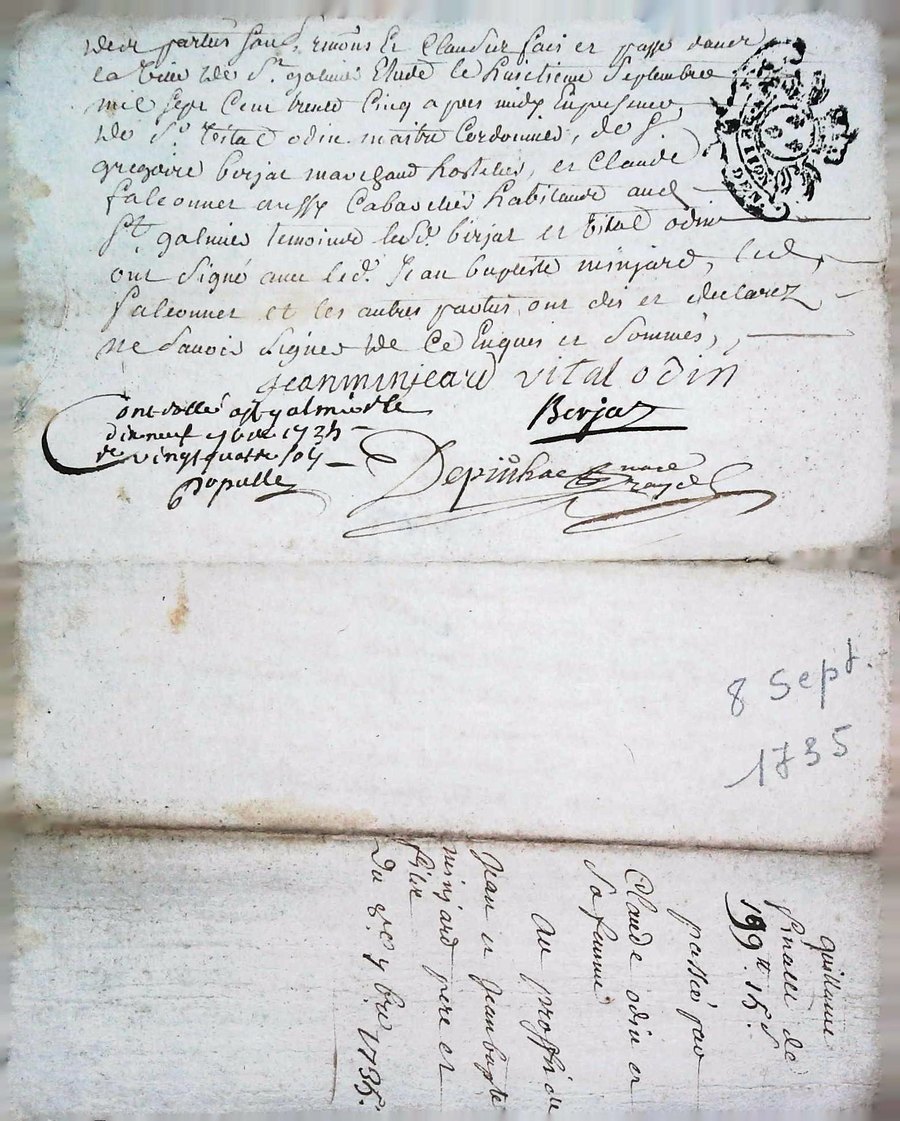 des parties sauf rmons et Clauses fais et passé dans
la Ville de St. galmier Etude le huictieme Septembre
mil sept Cent trente Cinq apres midy En presence
de Sr. Vital odin maitre Cordonnier, de Sr.
gregoire berjat marchand hostelier, et Claude
falconner aussy Cabaretier habitants aud
St. galmier temoins lesd. berjat et Vital odin
ont signé avec led. Jean baptiste minjard, led
falconner et les autres parties ont dis et declarez
ne savoir signer de Ce Enquis et sommés,
jean minjeard vital odin
Controllé a St galmier le
dix neuf 7bre 1735
Re vingt quatre sols
populle
Berjat
Depinhac
8 Sept.
1735
Quittance
finalle de
199tt. 15s.
passée par
Claude odin et
sa femme
au proffit de
Jean et Jean bapte
minjard pere et
filx
Du 8e 7bre 1735.